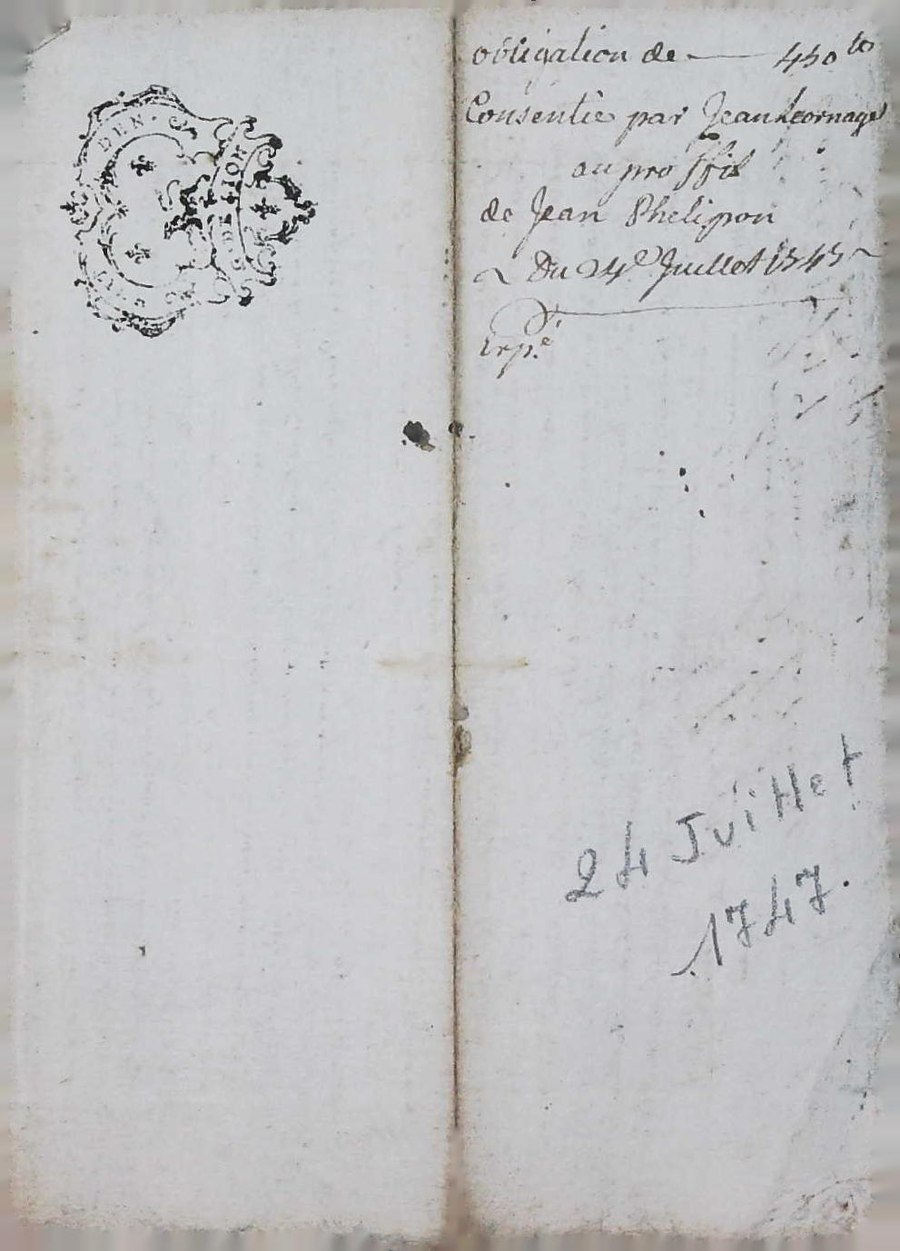 DEN.
obligation de — 450 lb
Consentie par Jean
au proffit
de Jean Phelipon
~ Du 24e Juillet 1747 ~
Exp.é
24 Juillet
1747.